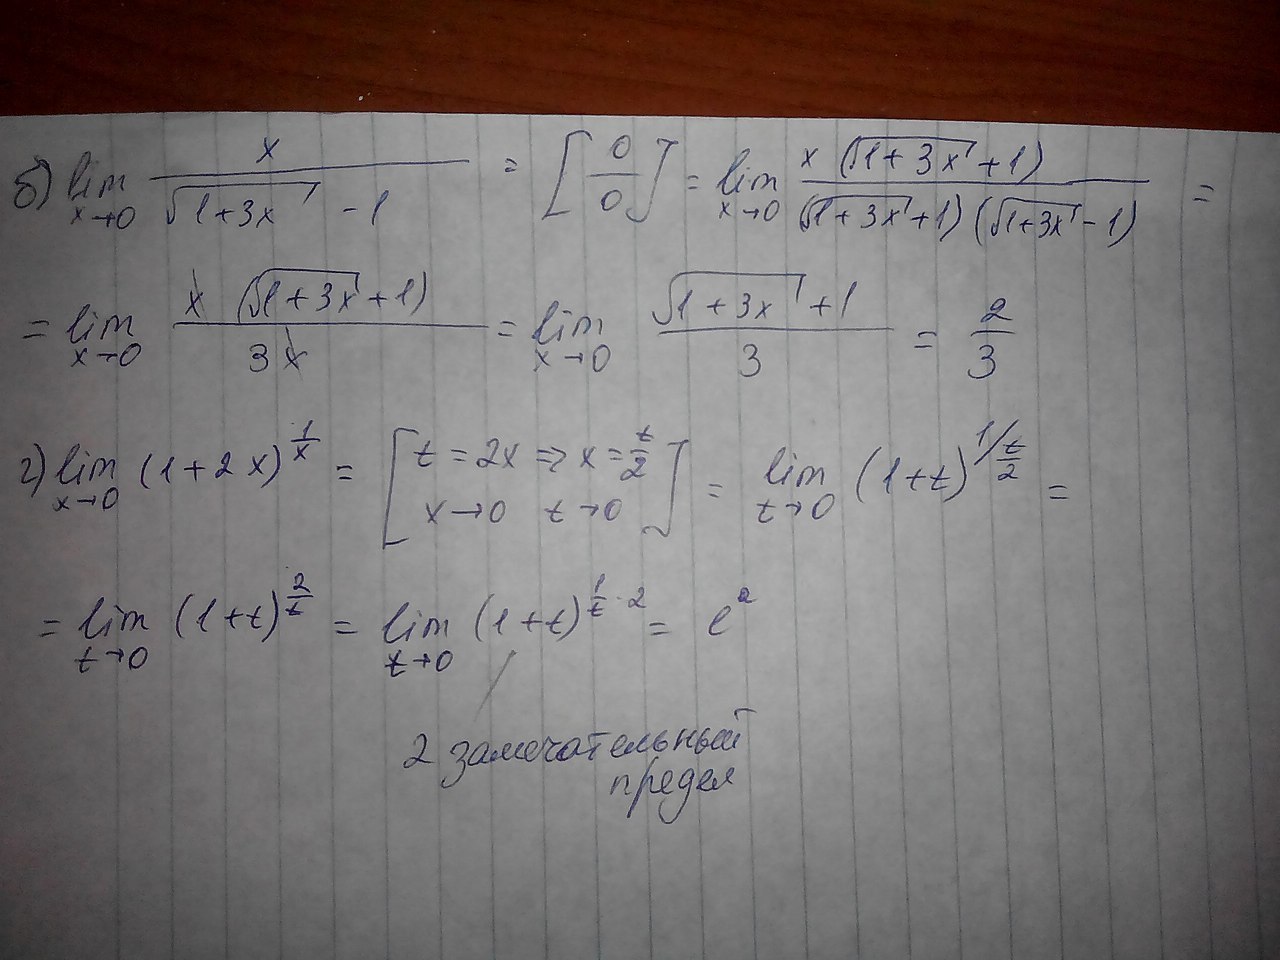 б) lim x→0 x / (√(1+3x) - 1) = [0/0] = lim x→0 x (√(1+3x) + 1) / (√(1+3x) + 1) (√(1+3x) - 1) =
= lim x→0 x (√(1+3x) + 1) / 3x = lim x→0 (√(1+3x) + 1) / 3 = 2/3
г) lim x→0 (1+2x)^(1/x) = [t = 2x ⇒ x = t/2 x→0 t→0] = lim t→0 (1+t)^(1/(t/2)) =
= lim t→0 (1+t)^(2/t) = lim t→0 (1+t)^(1/t · 2) = e^2
2 замечательный
предел